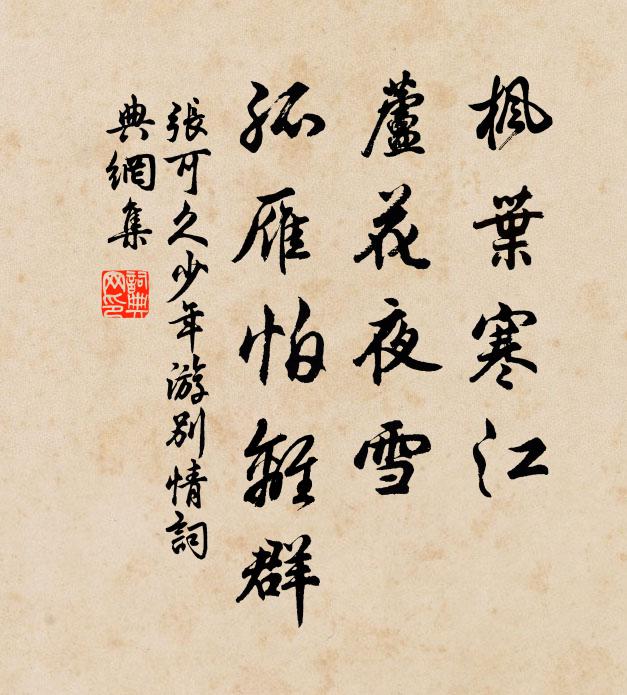 楓葉寒江
蘆花夜雪
孤雁怕離群
張可久少年游別情詞
典網集
詞典网印